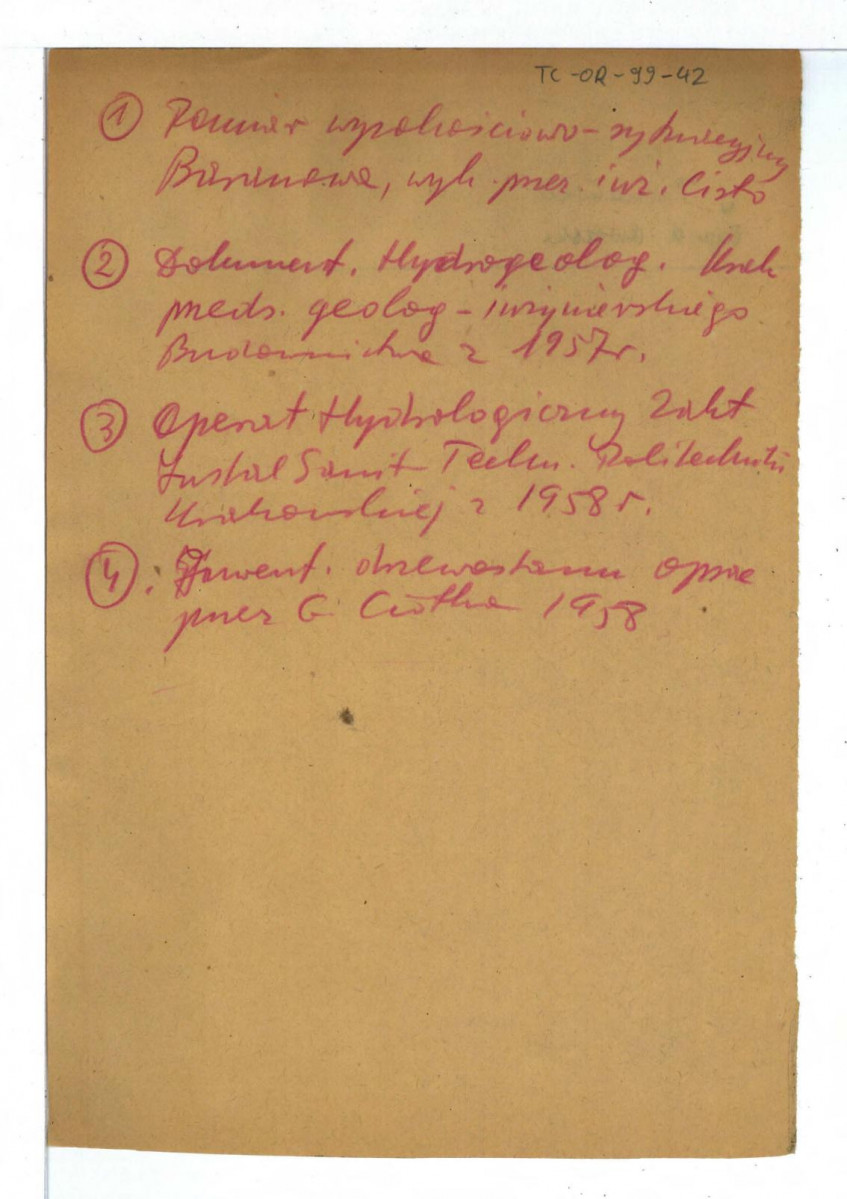 TC-OR-99-42
① Pomiar wysokościowo-sytuacyjny
Baranowa, wyk. przez inż. Cisło
② Dokument. Hydrogeolog. Krak
przeds. geolog-inżynierskiego
Budownictwa z 1957r.
③ Operat Hydrologiczny Zakł
Instal Sanit Techn. Politechniki
Krakowskiej z 1958r.
④. Inwent. drzewostanu oprac
przez G. Ciołka 1958